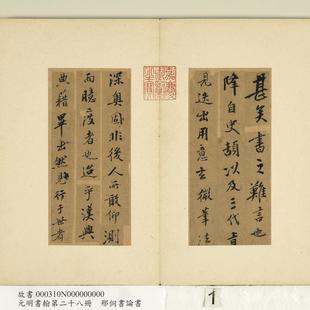 甚矣書之難言也
降自史頡以及三代
迭出用意玄微筆法
深奧固非後人所敢仰測
而臆度者也迨乎漢興
典籍畢出然行于世者
故書 000310N000000000
元明書翰第二十八冊 邢侗書論書